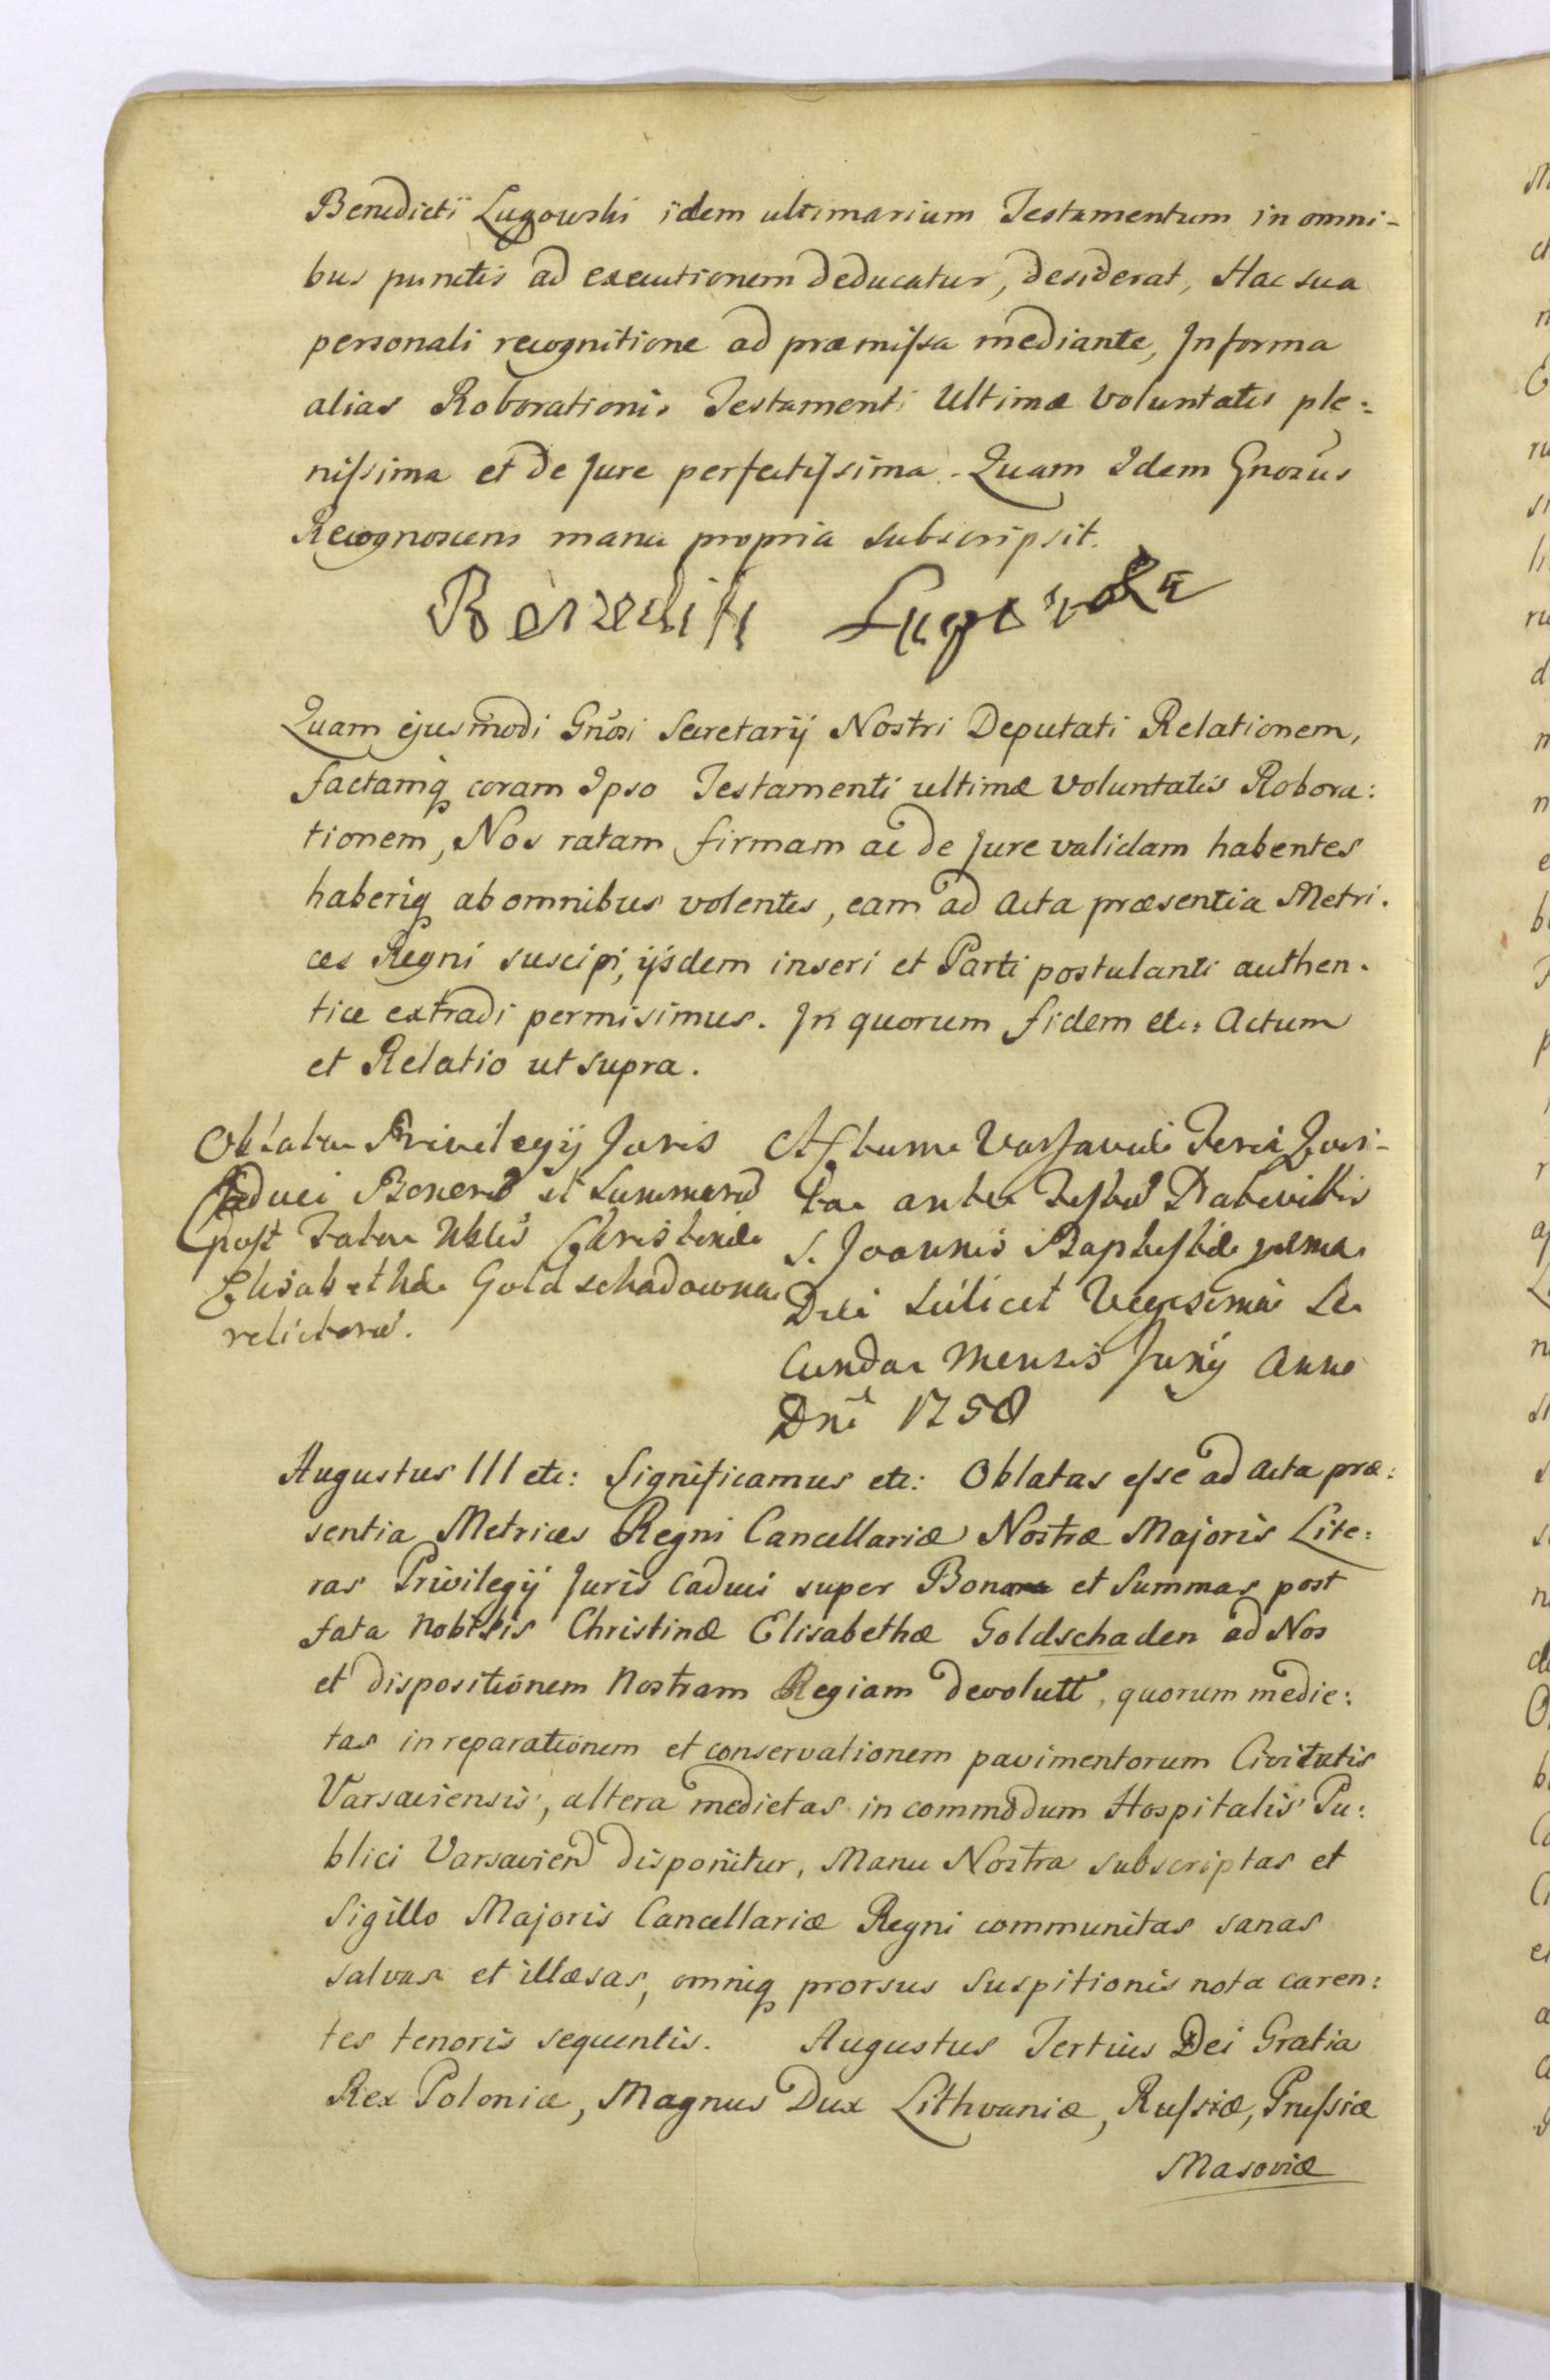 Benedicti Lugowski idem ultimarium Testamentum in omni-
bus punctis ad executionem deducatur, desiderat, Hac sua
personali recognitione ad præmissa mediante, In forma
alias Roborationis Testamenti Ultimæ Voluntatis ple:
nissima et de Jure perfectissima. Quam Idem Gnosus
Recognoscens manu propria subscripsit.
Benedikt Lugowski
Quam ejusmodi Gnosi Secretarij Nostri Deputati Relationem,
factamq coram Ipso Testamenti ultimæ voluntatis Robora:
tionem, Nos ratam firmam ac de Jure validam habentes
haberiq ab omnibus volentes, eam ad Acta præsentia Metri.
ces Regni suscipi, ijsdem inseri et Parti postulanti authen.
tice extradi permisimus. In quorum fidem etc: Actum
et Relatio ut supra.
Oblata Privilegij Juris
Caduci Bonorū et Summarū
post Fata Nblis Christinæ
Elisabethæ Goldschadowna
relictorū.
Actum Varsaviæ Feria Quin-
ta ante Festū Nativittis
S. Joannis Baptistæ pxma
Die scilicet Vigesima Se
cunda Mensis Junij Anno
Dni 1758
Augustus III etc: Significamus etc: Oblatas esse ad Acta præ:
sentia Metrices Regni Cancellariæ Nostræ Majoris Lite:
ras Privilegij Juris Caduci super Bona et Summas post
fata Nobilis Christinæ Elisabethæ Goldschaden ad Nos
et dispositionem Nostram Regiam devolutt, quorum medie:
tas in reparationem et conservationem pavimentorum Civitatis
Varsaviensis, altera medietas in commodum Hospitalis Pu:
blici Varsavien disponitur, Manu Nostra subscriptas et
Sigillo Majoris Cancellariæ Regni communitas sanas
salvas et illæsas, omniq prorsus suspitionis nota caren:
tes tenoris sequentis. Augustus Tertius Dei Gratia
Rex Poloniæ, Magnus Dux Lithvaniæ, Russiæ, Prussiæ
Masoviæ